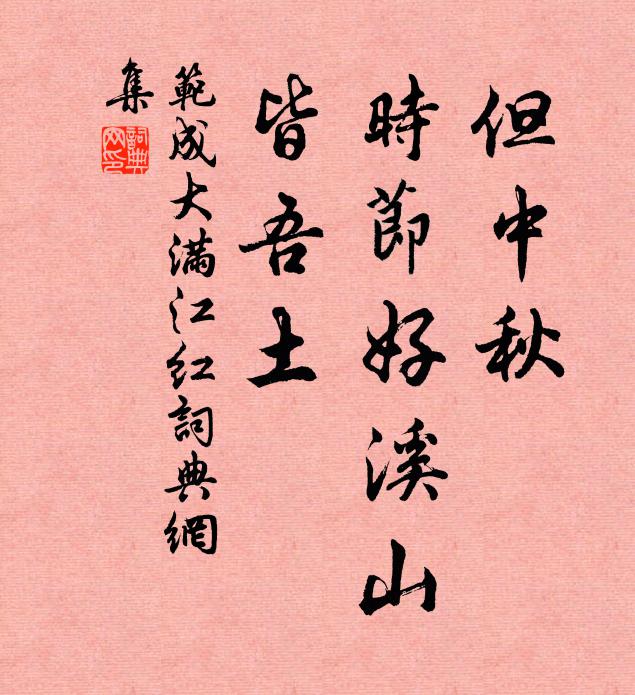 但中秋
時節好溪山
皆吾土
範成大滿江红詞典網
集
詞典
网印